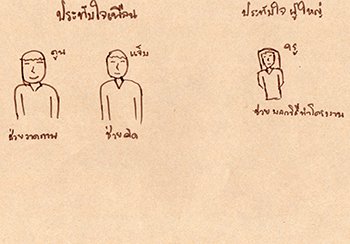 ประทับใจเพื่อน
ประทับใจ ผู้ใหญ่
ตูน
แจ็ม
ครู
ช่วยวาดภาพ
ช่วยคิด
ช่วย บอกวิธีทำโครงงาน